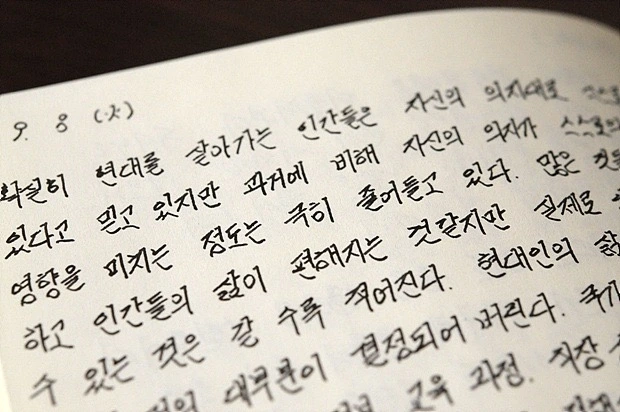 9. 8 (火)
확실히 현대를 살아가는 인간들은 자신의 의지대로
있다고 믿고 있지만 과거에 비해 자신의 의지가 스스로의
영향을 미치는 정도는 극히 줄어들고 있다. 많은 것들
하고 인간들의 삶이 편해지는 것같지만 실제로
수 있는 것은 갈 수록 적어진다. 현대인의 삶
대부분이 결정되어 버린다. 국가
교육 과정. 직장